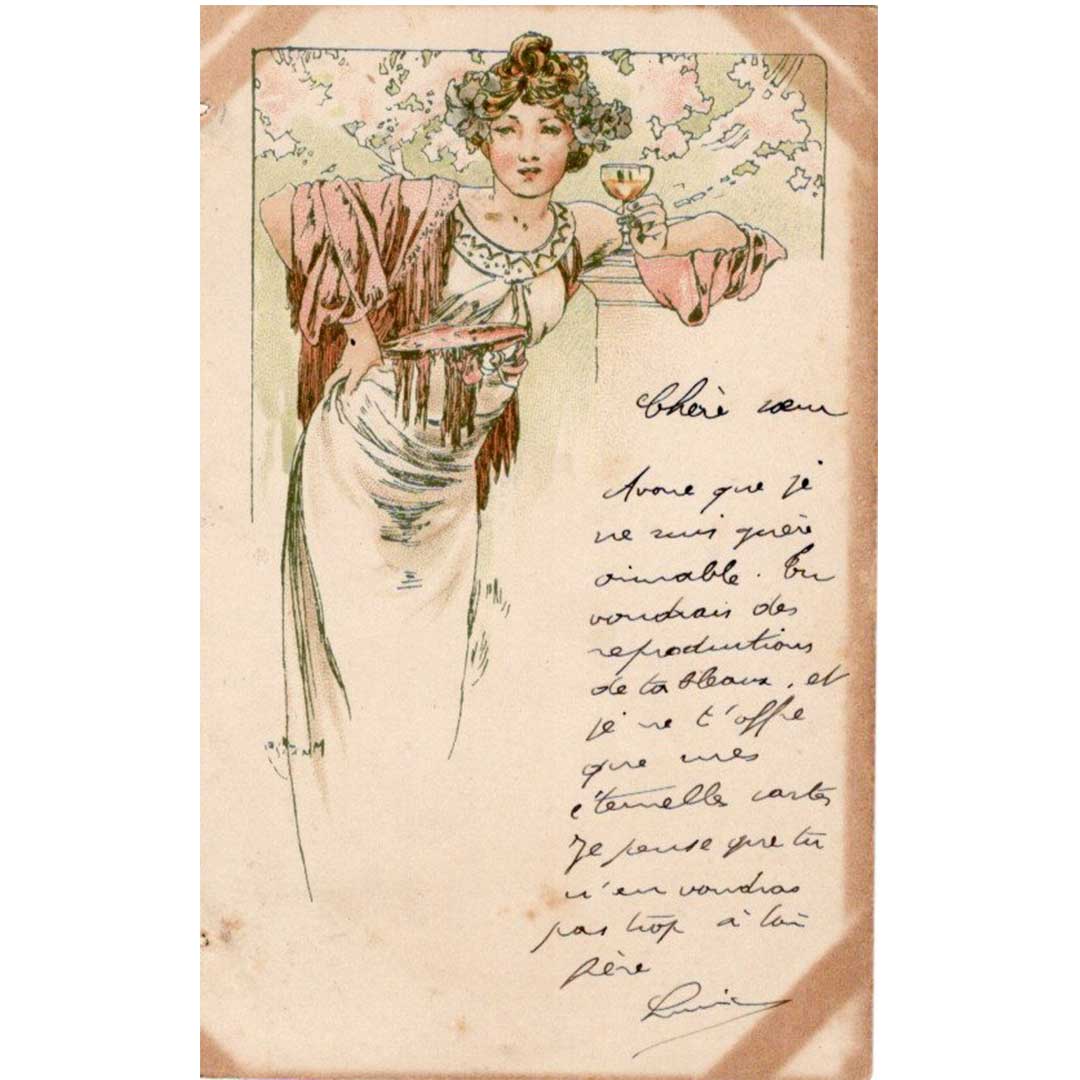 Chère sœur
Avoue que je
ne suis guère
aimable. Tu
voudrais des
reproductions
de tableaux, et
je ne t'offre
que mes
éternelles cartes
Je pense que tu
n'en voudras
pas trop à ton
père